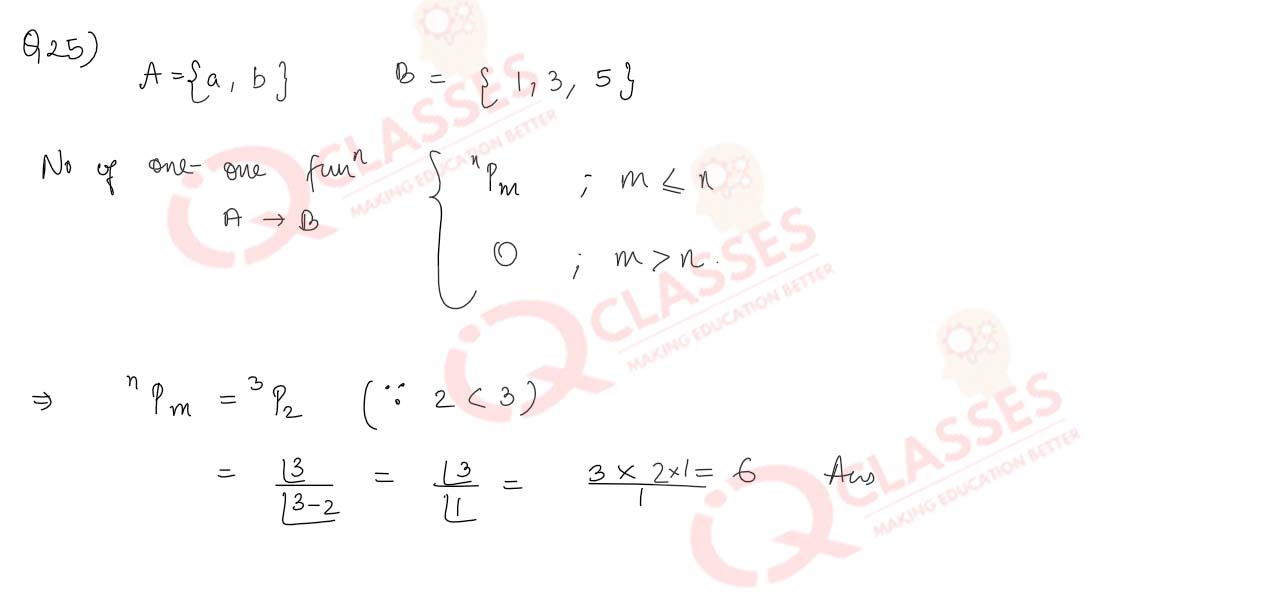 Q25)
A = {a, b} B = { 1, 3, 5 }
No of one-one funⁿ { ⁿPₘ ; m ≤ n
A → B
0 ; m > n.
⇒ ⁿPₘ = ³P₂ (∵ 2 < 3)
= |3 / |3-2 = |3 / |1 = 3 × 2×1 / 1 = 6 Ans
iQ CLASSES
MAKING EDUCATION BETTER
iQ CLASSES
MAKING EDUCATION BETTER
iQ CLASSES
MAKING EDUCATION BETTER